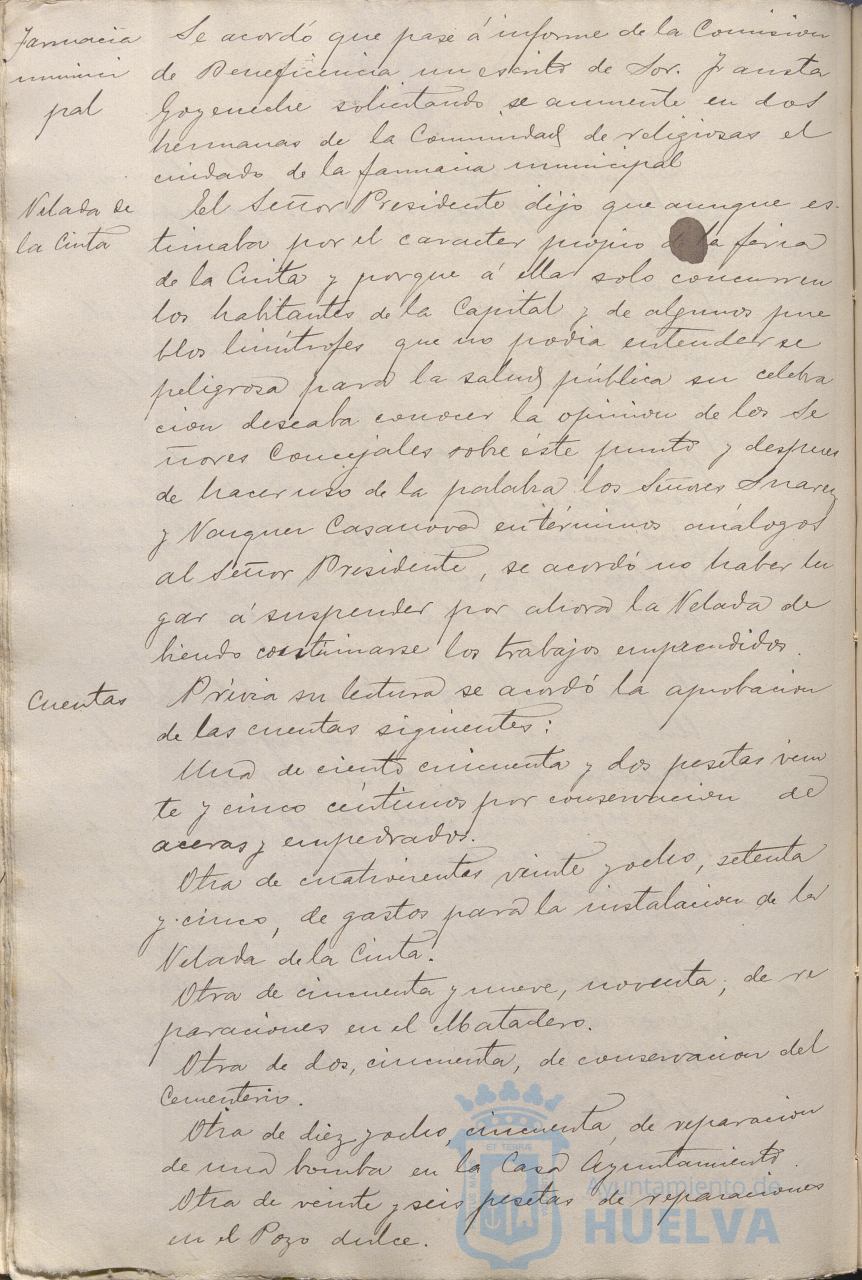 Farmacia
munici
pal
Se acordó que pase á informe de la Comision
de Beneficencia un escrito de Sor. Fausta
Goyeneche solicitando se aumente en dos
hermanas de la Comunidad de religiosas el
cuidado de la farmacia municipal
Velada de
la Cinta
El Señor Presidente dijo que aunque es-
timaba por el caracter propio de la feria
de la Cinta y porque á ella solo concurren
los habitantes de la Capital y de algunos pue
blos limítrofes que no podia entenderse
peligrosa para la salud pública su celebra
cion deseaba conocer la opinion de los Se
ñores Concejales sobre éste punto y despues
de hacer uso de la palabra los Señores Suarez
y Vazquez Casanova en términos análogos
al Señor Presidente, se acordó no haber lu
gar á suspender por ahora la Velada de
biendo continuarse los trabajos emprendidos.
Cuentas
Prévia su lectura se acordó la aprobacion
de las cuentas siguientes:
Una de ciento cincuenta y dos pesetas vein
te y cinco céntimos por conservacion de
aceras y empedrados.
Otra de cuatrocientas veinte y ocho, setenta
y cinco, de gastos para la instalacion de la
Velada de la Cinta.
Otra de cincuenta y nueve, noventa, de re
paraciones en el Matadero.
Otra de dos, cincuenta, de conservacion del
Cementerio.
Otra de diez y ocho, cincuenta, de reparacion
de una bomba en la Casa Ayuntamiento.
Otra de veinte y seis pesetas de reparaciones
en el Pozo dulce.
Ayuntamiento de
HUELVA